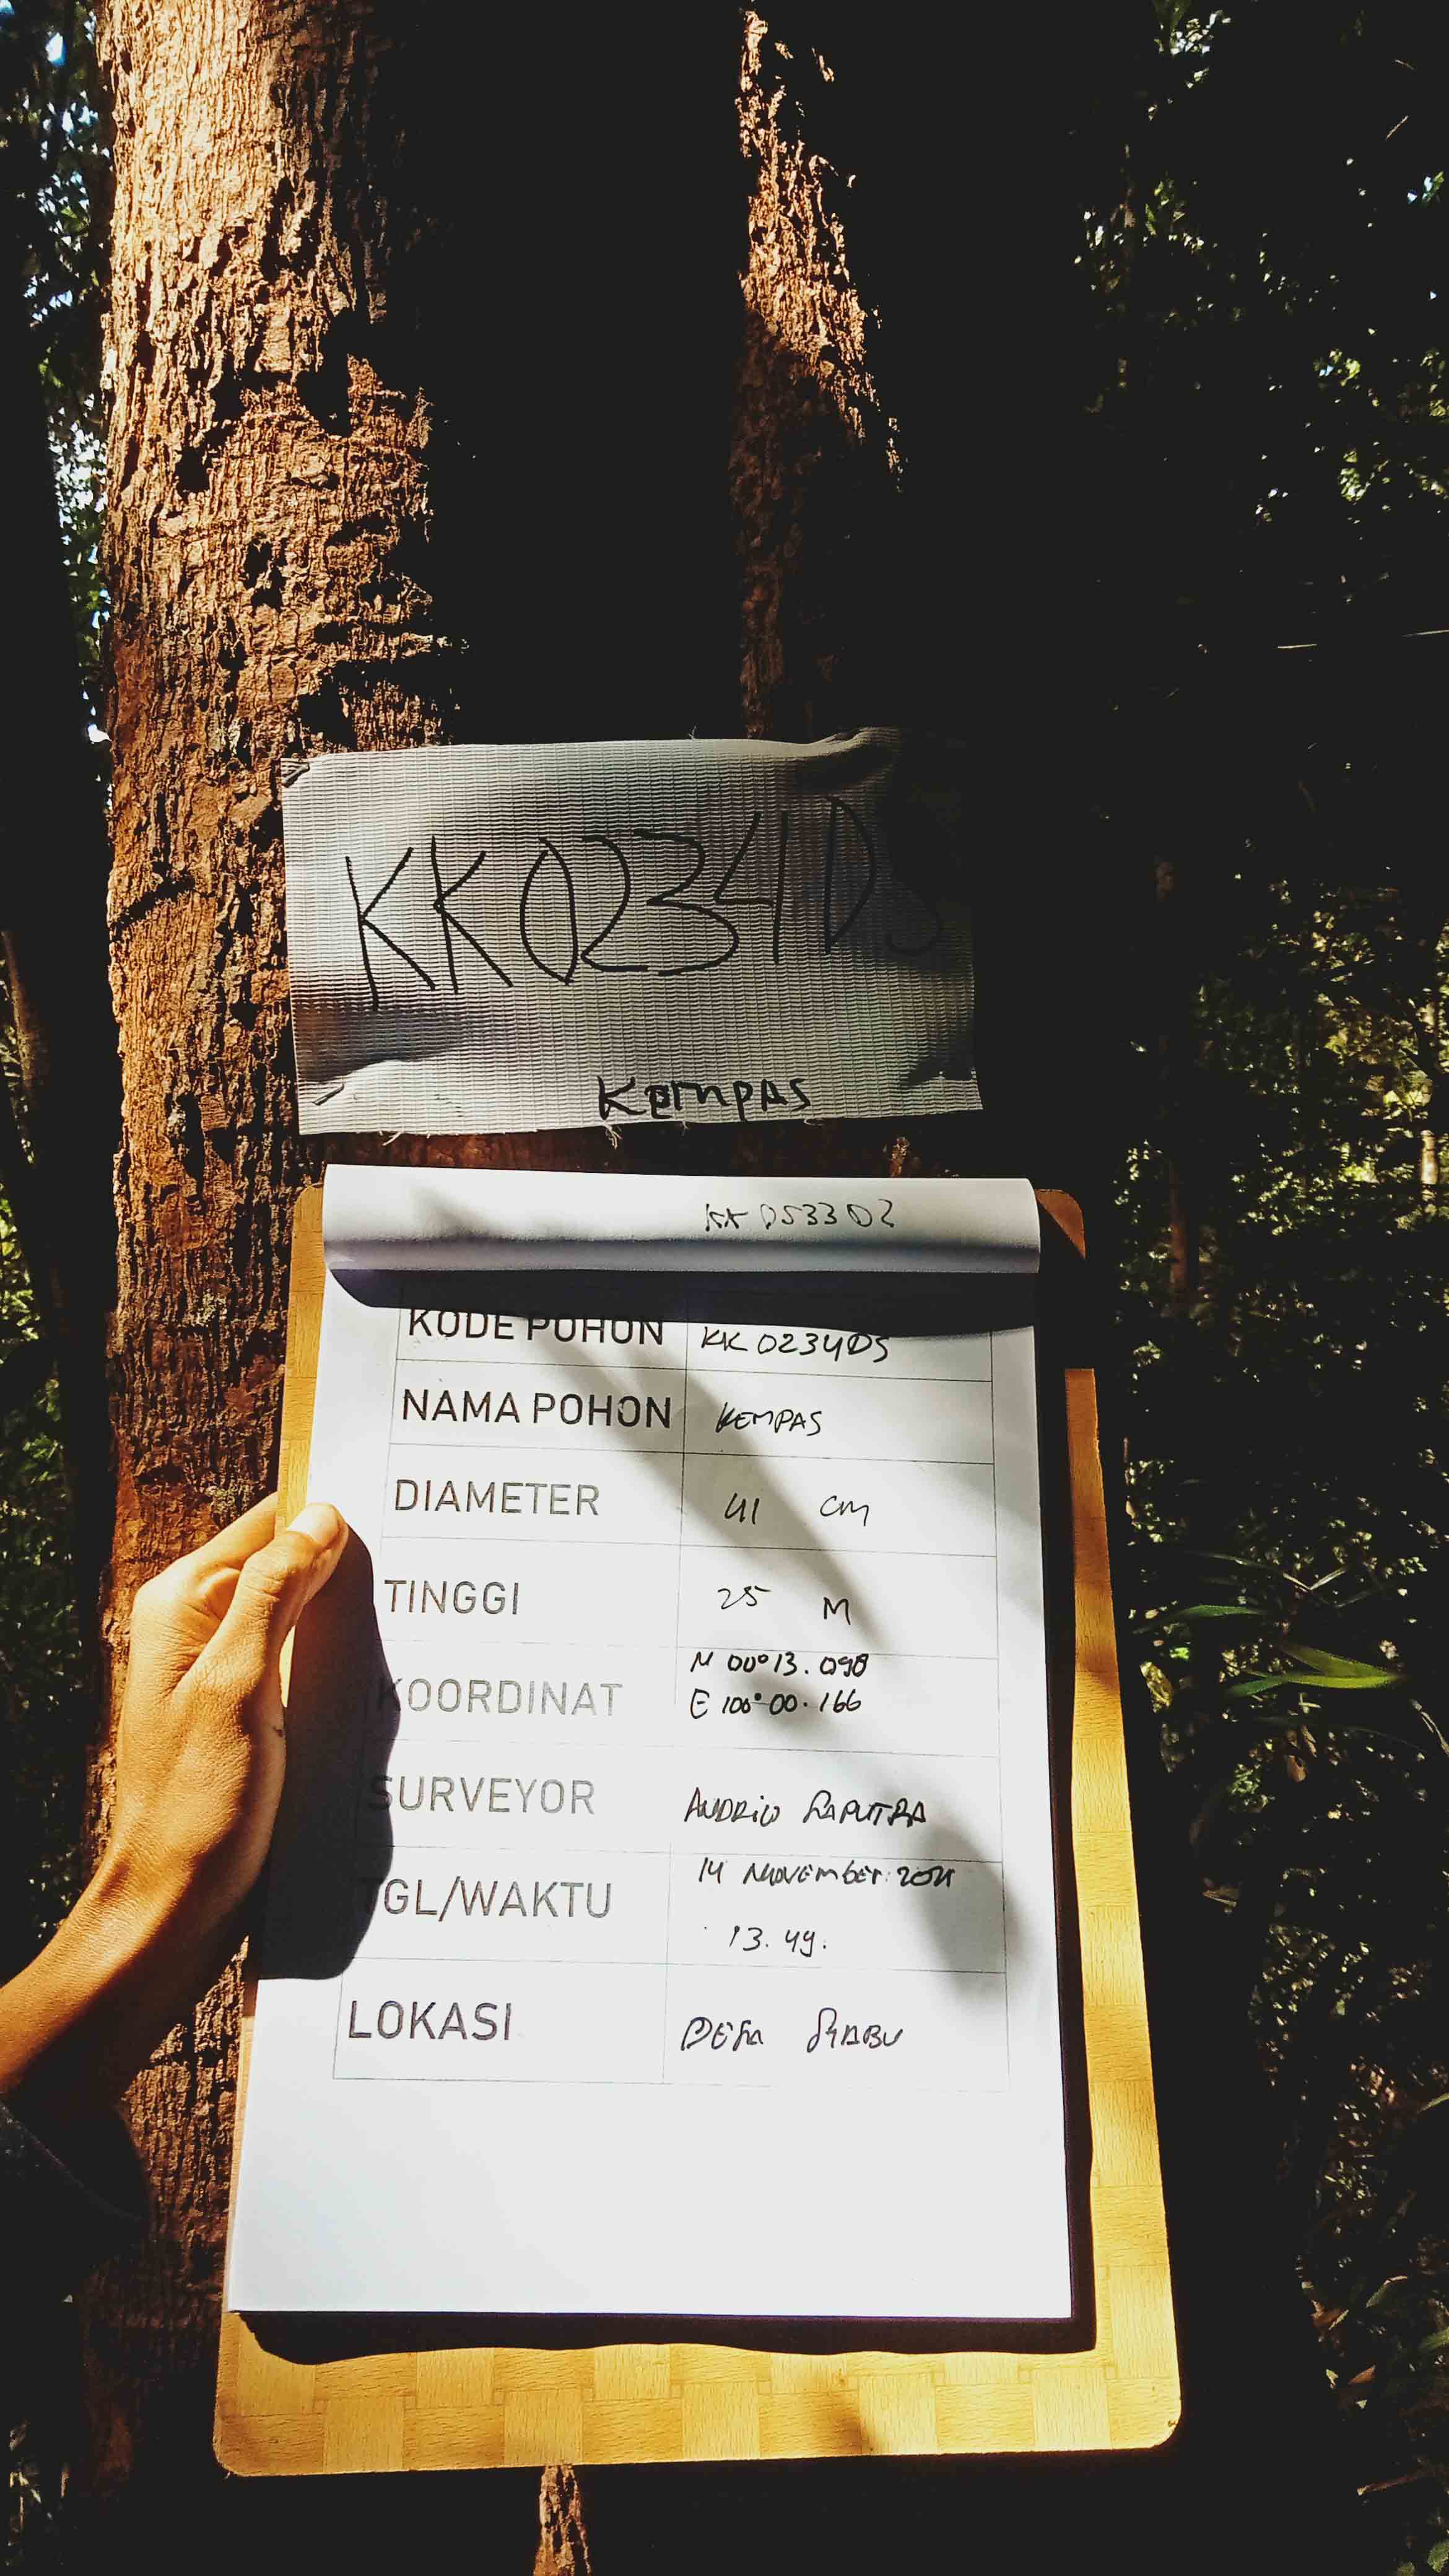 KK0234DS
Kempas
KK 0533 02
KODE POHON KK 0234DS
NAMA POHON KEMPAS
DIAMETER 41 cm
TINGGI 25 M
KOORDINAT N 00° 13. 098
E 100° 00. 166
SURVEYOR SAPUTRA
TGL/WAKTU 14 November
13. 49.
LOKASI DESA